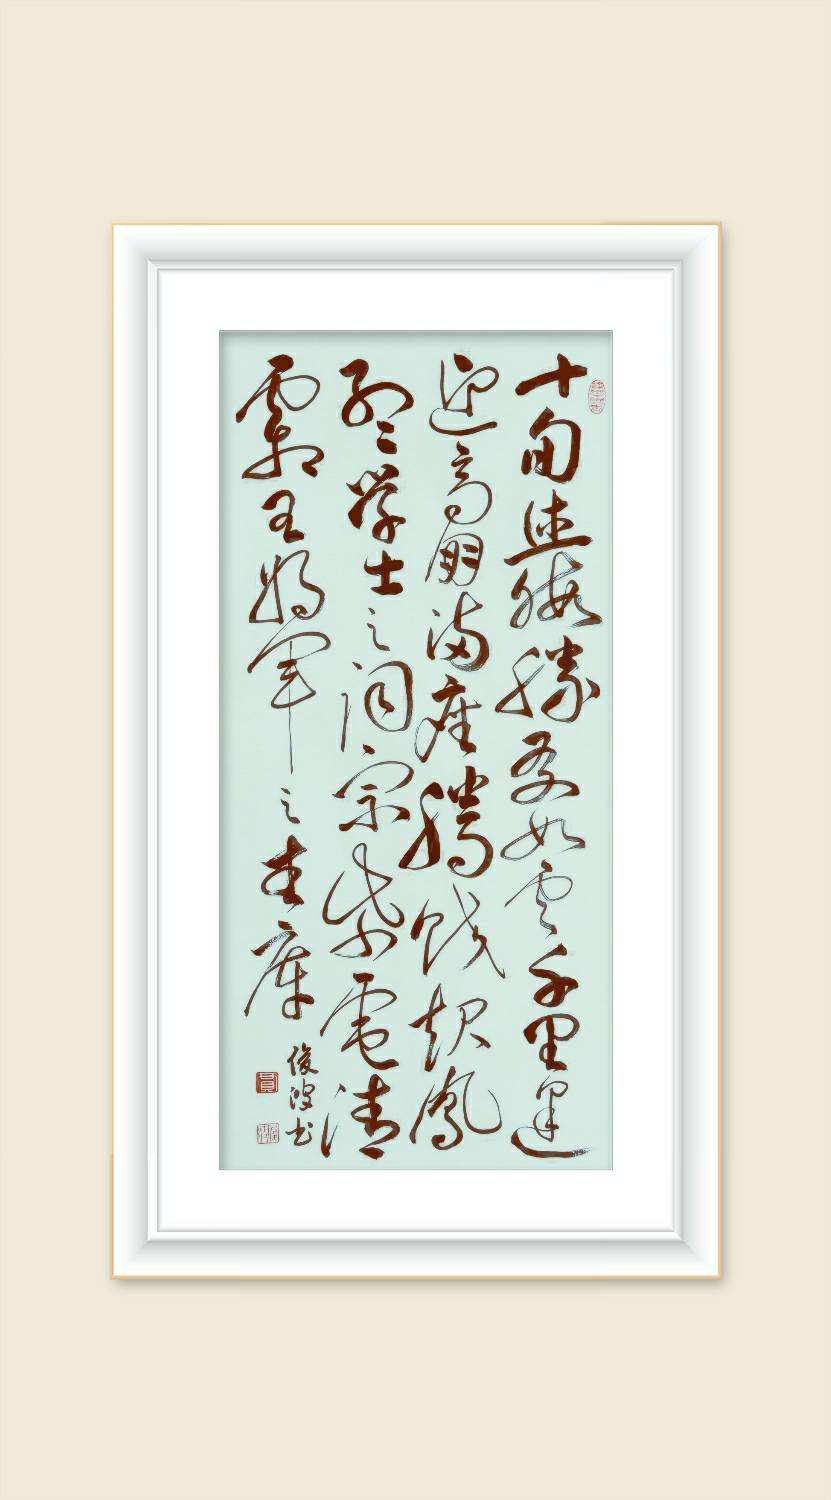 十旬休暇勝友如云千里逢
迎高朋满座騰蛟起鳳
孟学士之词宗紫電清
霜王将军之武库
俊波书